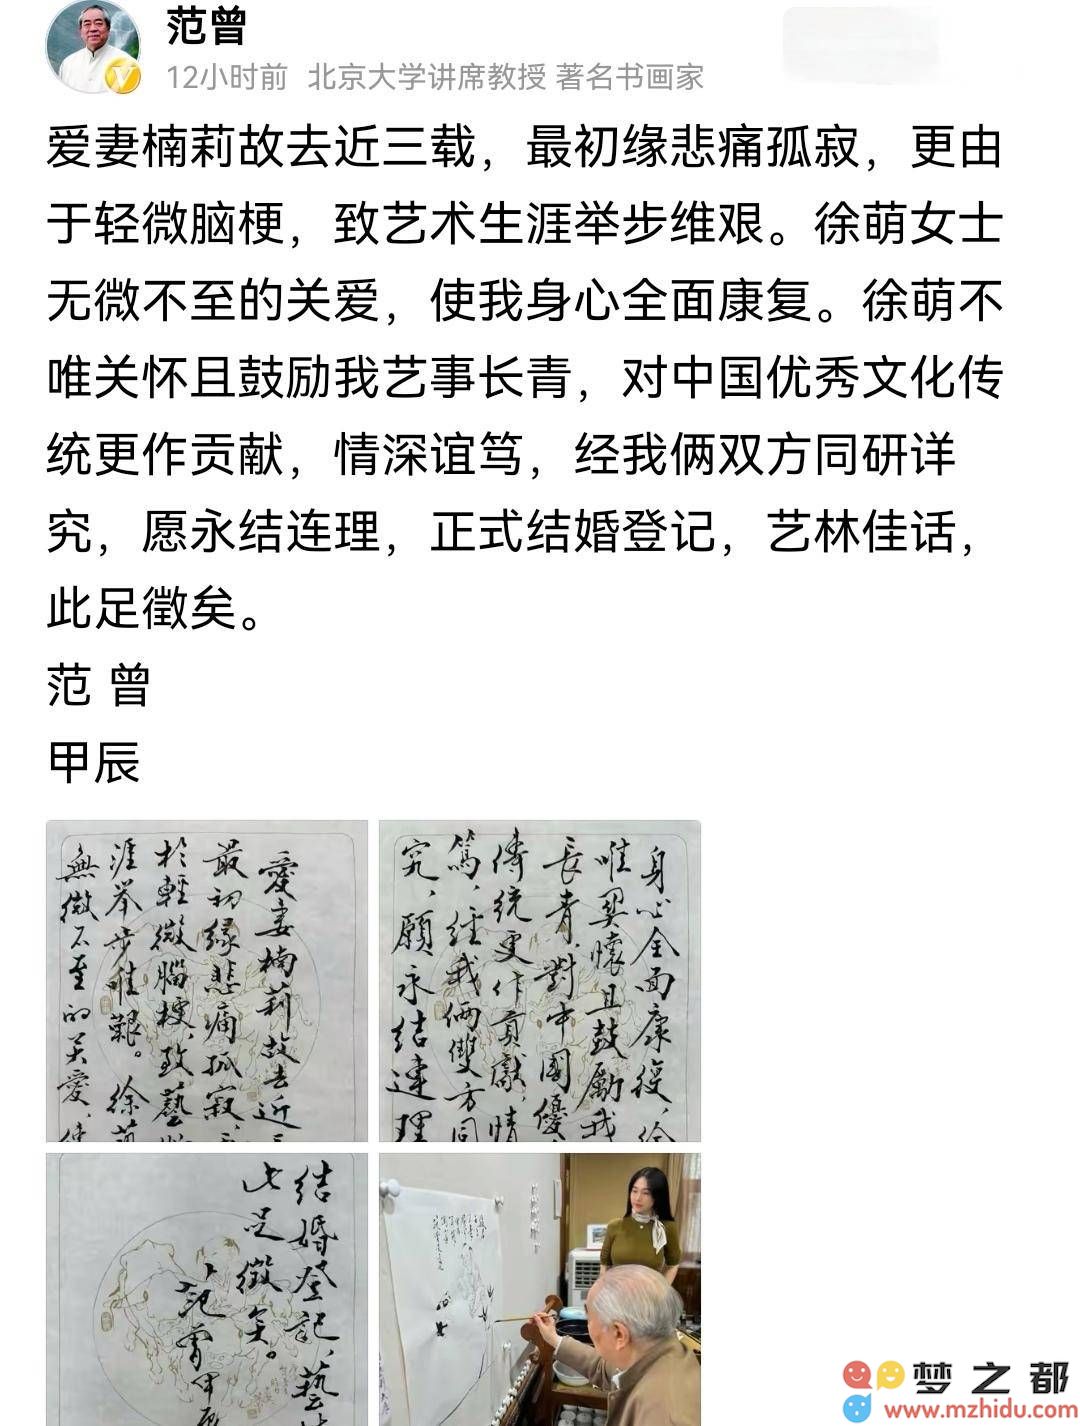 范曾
12小时前 北京大学讲席教授 著名书画家
爱妻楠莉故去近三载，最初缘悲痛孤寂，更由
于轻微脑梗，致艺术生涯举步维艰。徐萌女士
无微不至的关爱，使我身心全面康复。徐萌不
唯关怀且鼓励我艺事长青，对中国优秀文化传
统更作贡献，情深谊笃，经我俩双方同研详
究，愿永结连理，正式结婚登记，艺林佳话，
此足徵矣。
范 曾
甲辰
愛妻楠莉故去近
最初緣悲痛孤寂，
於輕微腦梗，致藝
涯举步维艱。徐萌
無微不至的关愛，使
身心全面康復，徐
唯関懷且鼓勵我
長青，對中國優
傳統更作貢獻，情
篤，经我俩雙方同
究，願永结連理
结婚登記，藝
此足徵矣。
范曾甲辰
梦之都
www.mzhidu.com